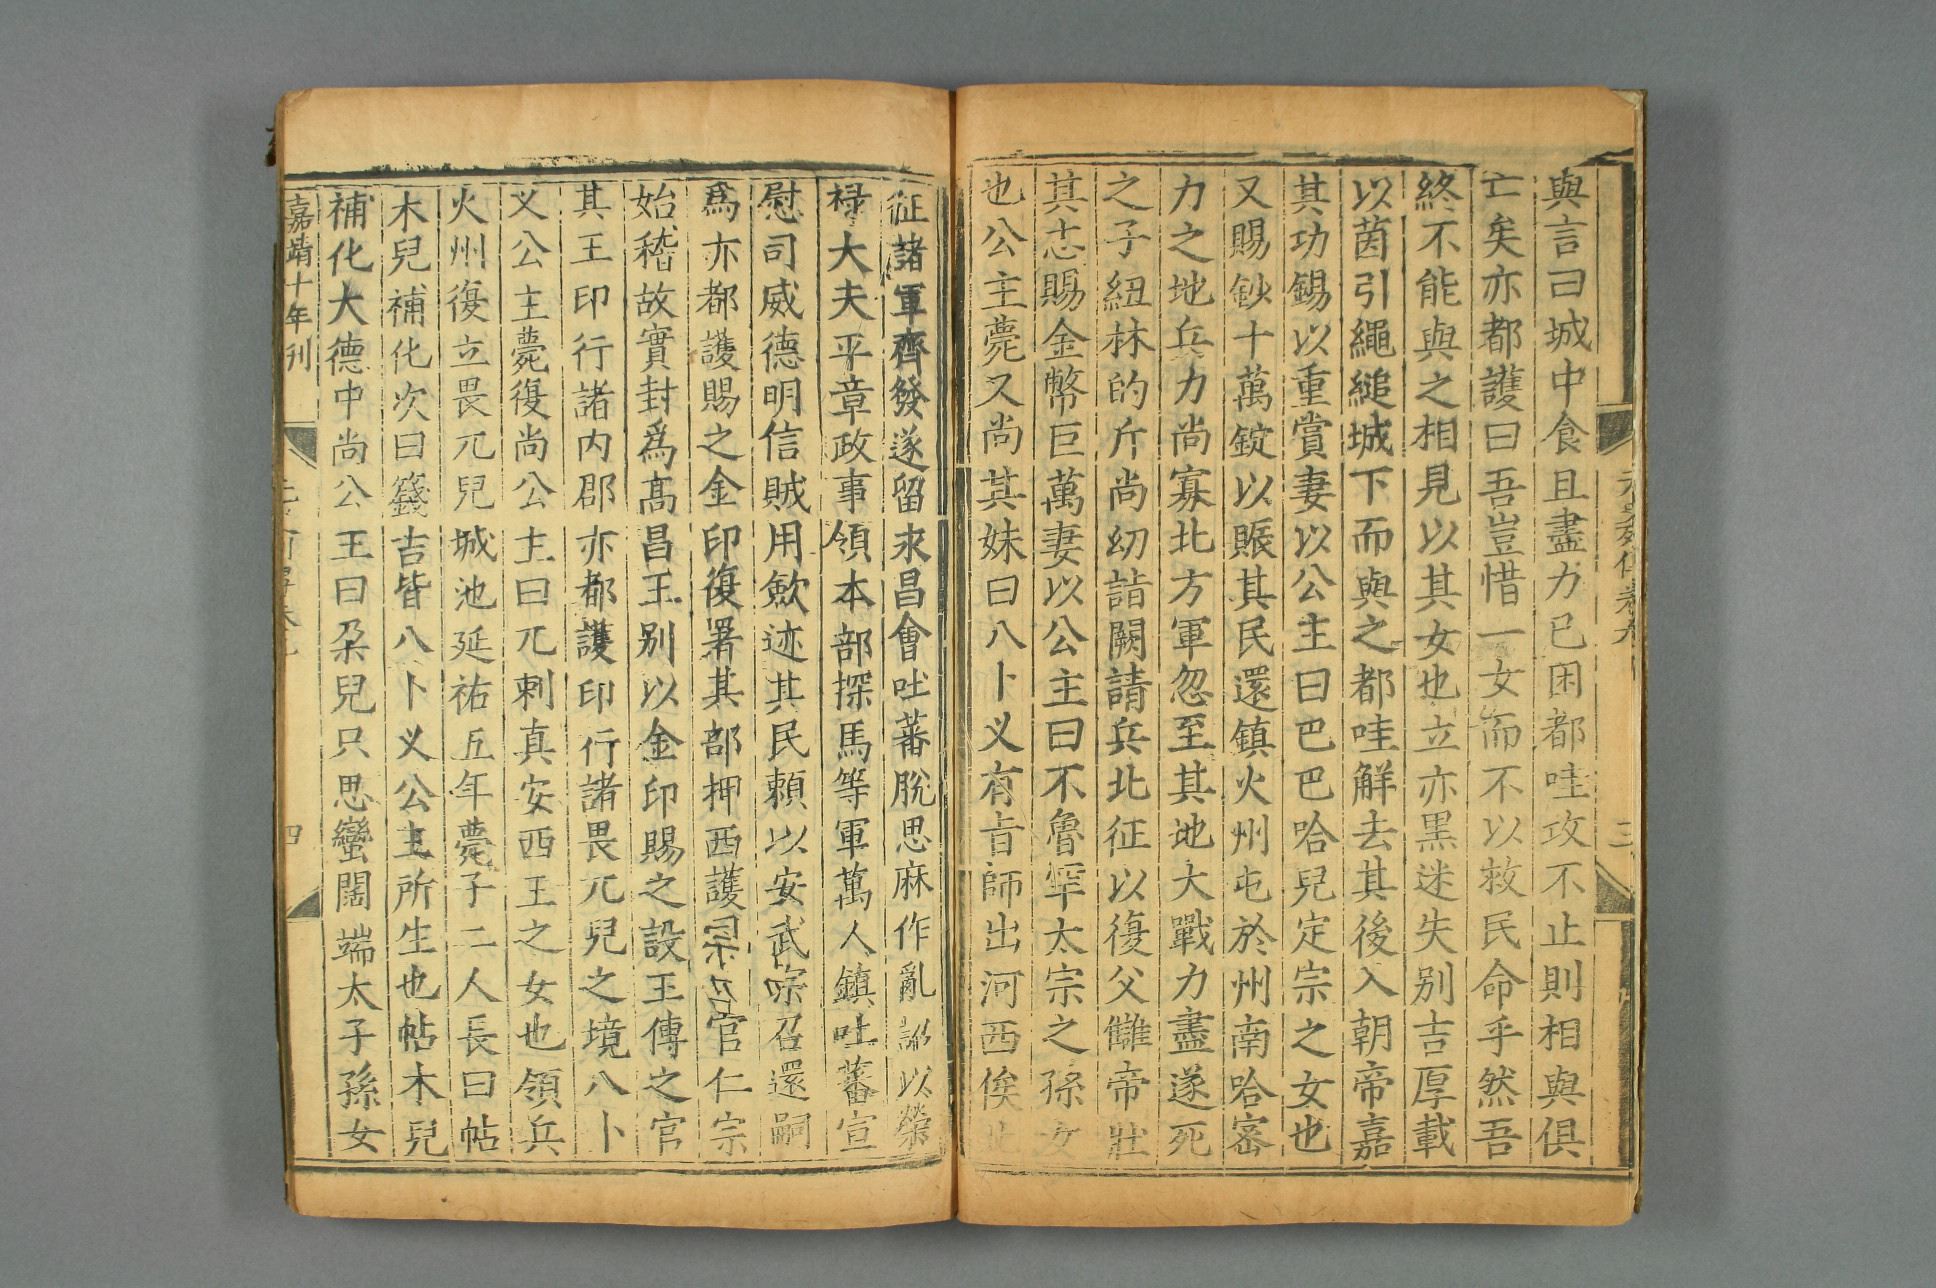 與言曰城中食且盡力已困都哇攻不止則相與俱
亡矣亦都護曰吾豈惜一女而不以救民命乎然吾
終不能與之相見以其女也立亦黑迷失别吉厚載
以茵引繩縋城下而與之都哇解去其後入朝帝嘉
其功錫以重賞妻以公主曰巴巴哈兒定宗之女也
又賜鈔十萬錠以賑其民還鎮火州屯於州南哈密
力之地兵力尚寡北方軍忽至其地大戰力盡遂死
之子紐林的斤尚幼詣闕請兵北征以復父讎帝壯
其志賜金幣巨萬妻以公主曰不魯罕太宗之孫女
也公主薨又尚其妹曰八卜义有旨師出河西俟北
征諸軍齊發遂留永昌會吐蕃脫思麻作亂詔以榮
禄大夫平章政事領本部探馬等軍萬人鎮吐蕃宣
慰司威德明信賊用歛迹其民賴以安武宗召還嗣
爲亦都護賜之金印復署其部押西護司之官仁宗
始稽故實封爲髙昌王别以金印賜之設王傳之官
其王印行諸内郡亦都護印行諸畏兀兒之境八卜
义公主薨復尚公主曰兀剌真安西王之女也領兵
火州復立畏兀兒城池延祐五年薨子二人長曰帖
木兒補化次曰籛吉皆八卜义公主所生也帖木兒
補化大德中尚公主曰朶兒只思蠻闊端太子孫女
嘉靖十年刊
四